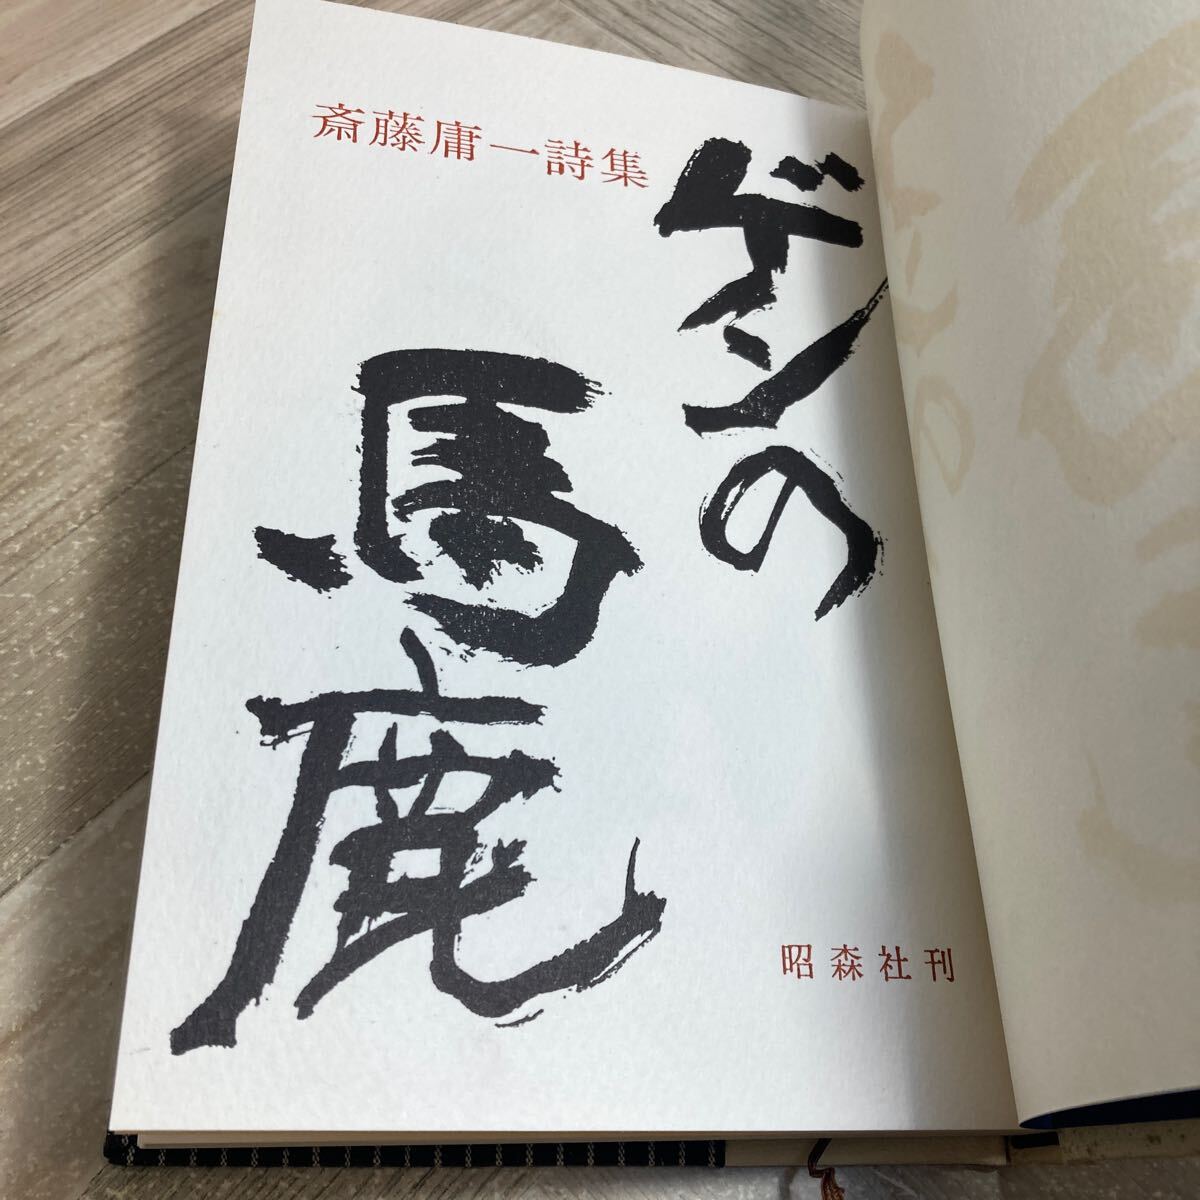 斎藤庸一詩集
ゲンの
馬鹿
昭森社刊